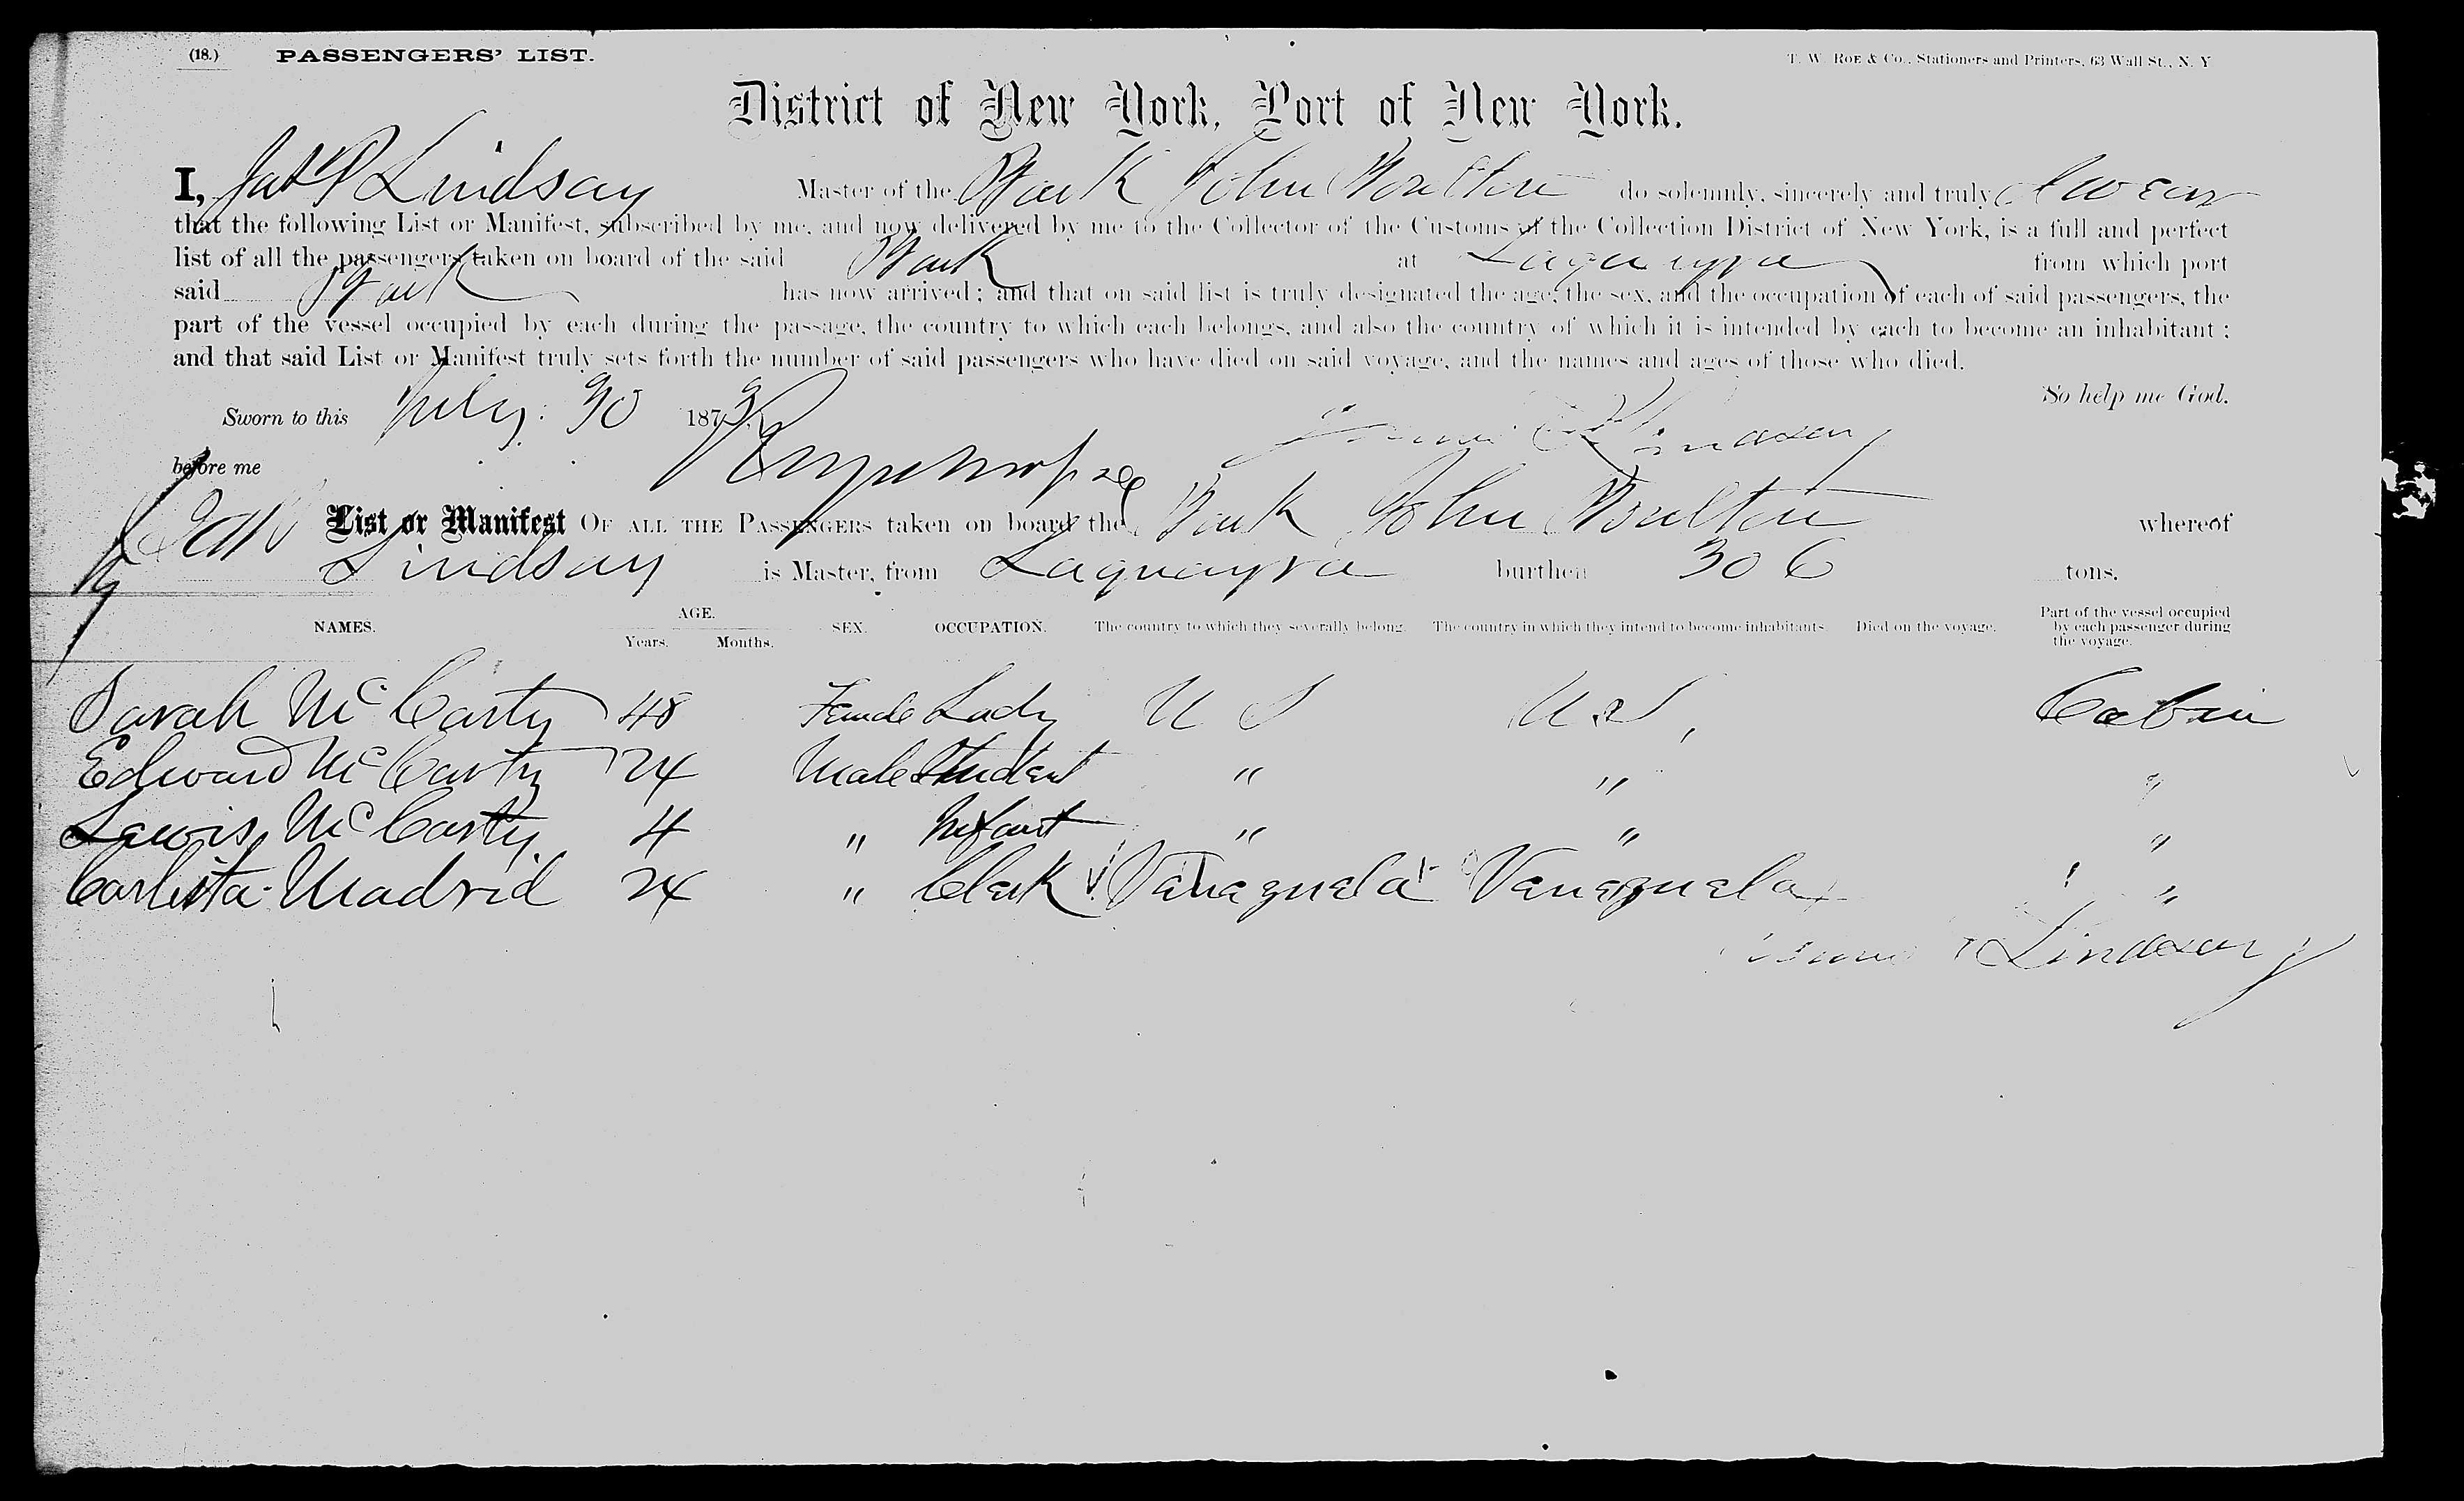 (18.) PASSENGERS' LIST. T. W. ROE & Co., Stationers and Printers, 63 Wall St., N. Y
District of New York, Port of New York.
I, Lindsay Master of the Bark John Boulton do solemnly, sincerely and truly Swear
that the following List or Manifest, subscribed by me, and now delivered by me to the Collector of the Customs of the Collection District of New York, is a full and perfect
list of all the passengers taken on board of the said Bark at Laguayra from which port
said Bark has now arrived; and that on said list is truly designated the age, the sex, and the occupation of each of said passengers, the
part of the vessel occupied by each during the passage, the country to which each belongs, and also the country of which it is intended by each to become an inhabitant;
and that said List or Manifest truly sets forth the number of said passengers who have died on said voyage, and the names and ages of those who died.
So help me God.
Sworn to this July 30 1873
Lindsay
before me
List or Manifest OF ALL THE PASSENGERS taken on board the Bark John Boulton whereof
Lindsay is Master, from Laguayra burthen 306 tons.
NAMES. AGE. Years. Months. SEX. OCCUPATION. The country to which they severally belong. The country in which they intend to become inhabitants. Died on the voyage. Part of the vessel occupied by each passenger during the voyage.
Sarah McCarty 48 Female Lady U S U.S. Cabin
Edward McCarty 24 Male Student " " "
Lewis McCarty 4 " Infant " " "
Carlista Madrid 24 " Clerk Vanazuela Vanazuela "
Lindsay